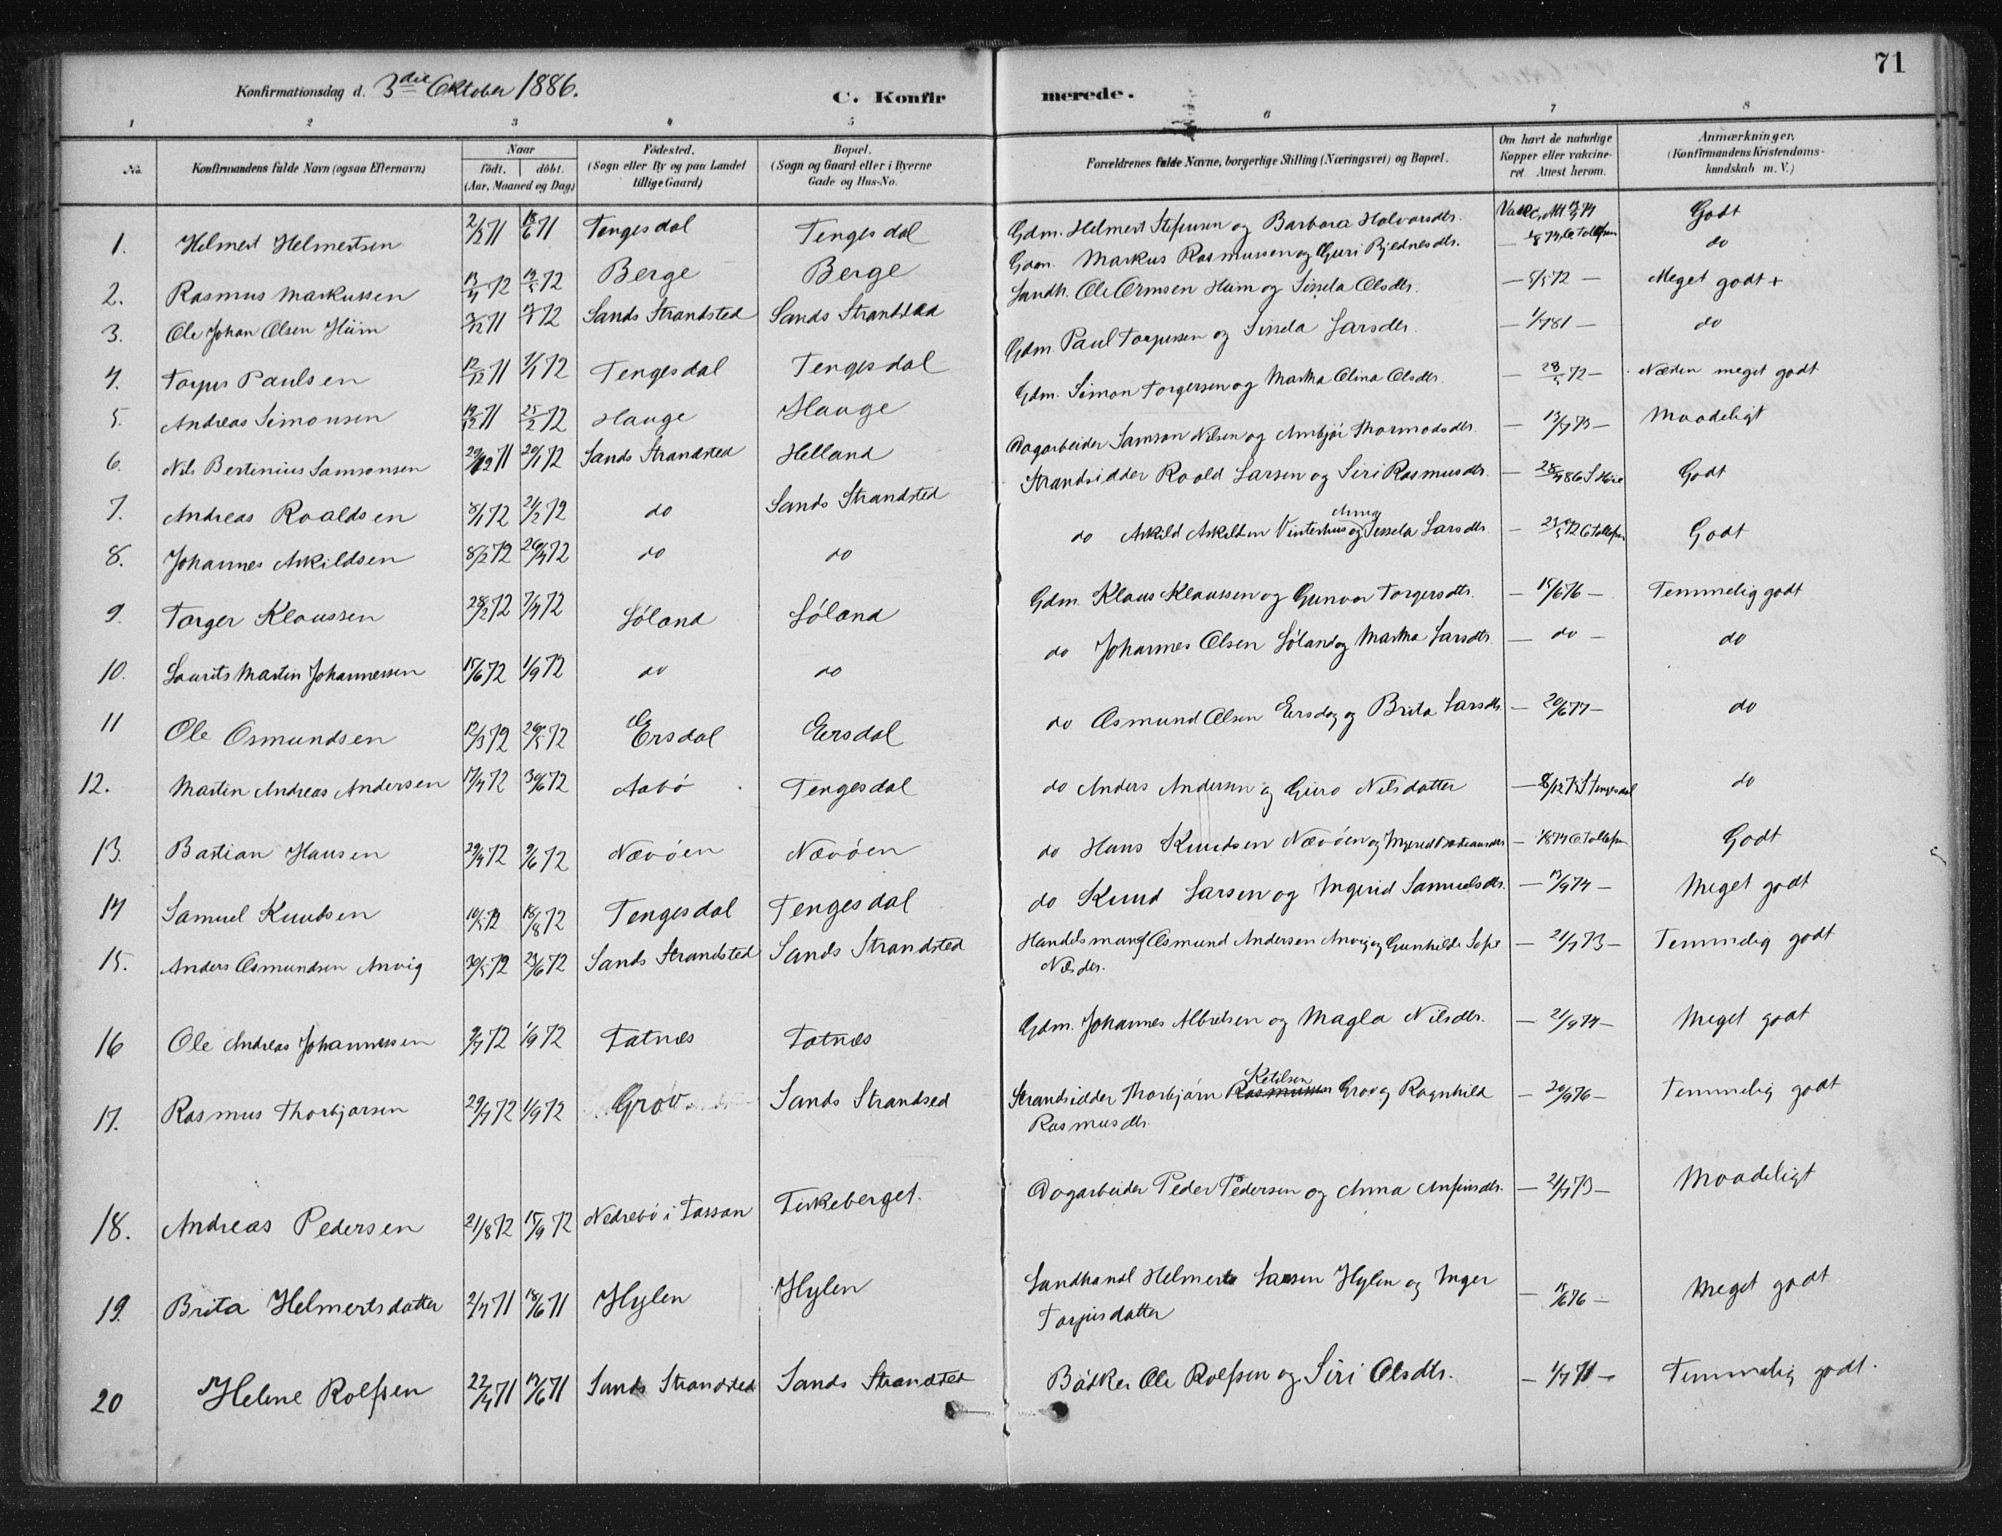 71
Konfirmationsdag d. 3die Oktober 1886.
C. Konfirmerede.
1 2 3 4 5 6 7 8
No. Konfirmandens fulde Navn (ogsaa Efternavn) Naar født. døbt. (Aar, Maaned og Dag) Fødested. (Sogn eller By og paa Landet tillige Gaard) Bopæl. (Sogn og Gaard eller i Byerne Gade og Hus-No. Forældrenes fulde Navne, borgerlige Stilling (Næringsvei) og Bopæl. Om havt de naturlige Kopper eller vakcineret. Attest herom. Anmærkninger. (Konfirmandens Kristendomskundskab m. V.)
1. Helmert Helmertsen 71 18/6 71 Tengesdal Tengesdal Gdm. Helmert Stefensen og Barbara Halvorsdtr. Godt
2. Rasmus Markussen 13/4 72 72 Berge Berge Gdm. Markus Rasmussen og Guri Bjednesdtr. do
3. Ole Johan Olsen Hiim 71 72 Sands Strandsted Sands Strandsted Landh. Ole Ormsen Hiim og Sissela Olsdtr. 72 — Meget godt +
4. Torjus Paulsen 12/12 71 1/1 72 Tengesdal Tengesdal Gdm. Paul Torjussen og Sissela Larsdtr. 81 — do
5. Andreas Simonsen 19/12 71 25/2 72 Hauge Hauge Gdm. Simon Torgersen og Martha Olina Olsdtr. 72 — Næsten meget godt
6. Nils Bertinius Samsonsen 29/12 71 20/1 72 Sands Strandsted Helland Dagarbeider Samson Nilsen og Anbjør Thormodsdtr. — 73 — Maadeligt
7. Andreas Roaldsen 8/1 72 21/2 72 do Sands Strandsted Strandsidder Roald Larsen og Siri Rasmusdtr. — 86 Godt
8. Johannes Askildsen 8/2 72 26/4 72 do do do Askild Askildsen Vinterhus og Anna Sissela Larsdtr. — 72 Godt
9. Torger Klaussen 28/2 72 7/4 72 Løland Løland Gdm. Klaus Klaussen og Gunvor Torgersdtr. — 15/6 76 — Temmelig godt
10. Laurits Martin Johannessen 15/6 72 1/9 72 do do do Johannes Olsen Løland og Martha Larsdtr. — do — do
11 Ole Osmundsen 12/3 72 26/5 72 Ersdal Ersdal do Osmund Olsen Ersdag og Brita Larsdtr. — 20/6 77 — do
12. Martin Andreas Andersen 17/4 72 30/6 72 Aabø Tengesdal do Anders Andersen og Guro Nilsdatter — 8/12 Tengesdal do
13. Bastian Hansen 29/4 72 9/6 72 Nævøen Nævøen do Hans Knudsen Nævøen og Ingerid Bastiansdtr — 1/8 74 Godt
14 Samuel Knutsen 10/5 72 18/8 72 Tengesdal Tengesdal do Knud Larsen og Ingerid Samuelsdtr. — 74 — Meget godt
15. Anders Osmundsen Anvig 30/5 72 23/6 72 Sands Strandsted Sands Strandsted Handelsmand Osmund Andersen Anvig og Gunhilde Sofie Nilsdtr. — 21/7 73 — Temmelig godt
16 Ole Andreas Johannessen 9/7 72 1/9 72 Fatnæs Fatnæs Gdm. Johannes Albretsen og Magla Nilsdtr. — 21/9 74 — Meget godt
17. Rasmus Thorbjørsen 29/7 72 1/9 72 Grov Sands Strandsed Strandsidder Thorbjørn Rasmussen Ketilsen Grov og Ragnhild Rasmusdtr. — 20/9 76 — Temmelig godt
18. Andreas Pedersen 21/8 72 15/9 72 Nedrebø i Fossan Firkeberget. Dagarbeider Peder Pedersen og Anna Anfinsdtr. — 2/7 73 — Maadeligt
19. Brita Helmertsdatter 2/4 71 18/6 71 Hylen Hylen Landhandl Helmert Larsen Hylen og Inger Torjusdatter — 76 — Meget godt
20 Helene Rolfsen 22/4 71 17/6 71 Sands Strandsted Sands Strandsted Bødker Ole Rolfsen og Siri Olsdtr. — 1/7 71 — Temmelig godt.